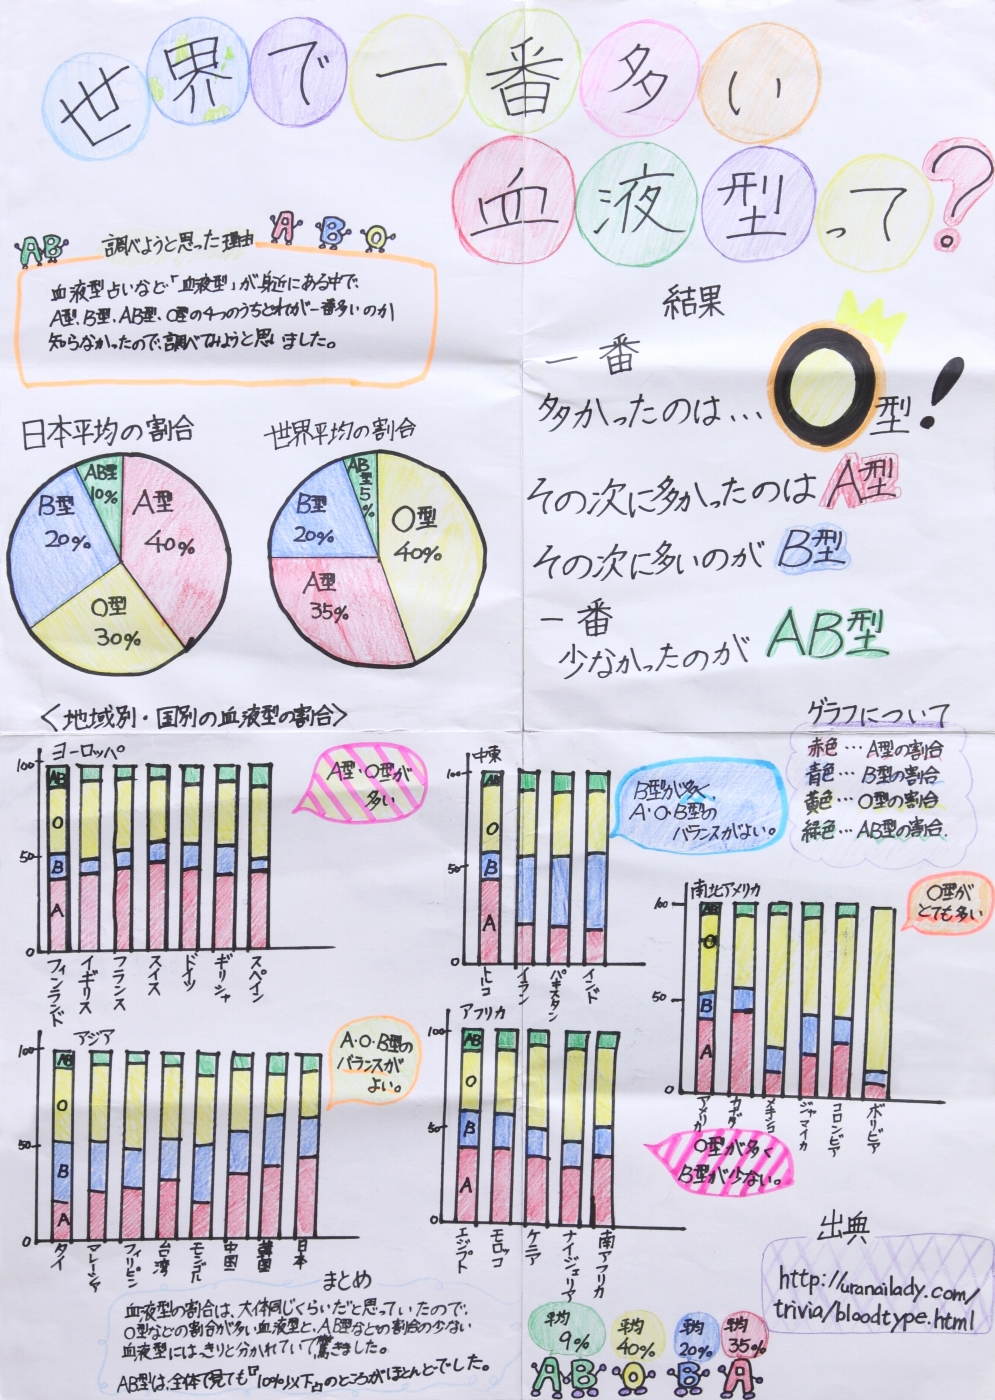 世界で一番多い
血液型って?
AB 調べようと思った理由 A B O
血液型占いなど「血液型」が身近にある中で、
A型、B型、AB型、O型の4つのうちどれが一番多いのか
知らなかったので、調べてみようと思いました。
結果
一番
多かったのは…O型!
その次に多かったのはA型
その次に多いのがB型
一番
少なかったのがAB型
日本平均の割合
AB型
10%
A型
40%
B型
20%
O型
30%
世界平均の割合
AB型
5%
O型
40%
B型
20%
A型
35%
<地域別・国別の血液型の割合>
グラフについて
赤色…A型の割合
青色…B型の割合
黄色…O型の割合
緑色…AB型の割合.
ヨーロッパ
100
50
0
AB
O
B
A
フィンランド
イギリス
フランス
スイス
ドイツ
ギリシャ
スペイン
A型・O型が
多い
中東
100
50
0
AB
O
B
A
トルコ
イラン
パキスタン
インド
B型が多く、
A・O・B型の
バランスがよい。
南北アメリカ
100
50
0
AB
O
B
A
アメリカ
カナダ
メキシコ
ジャマイカ
コロンビア
ボリビア
O型が
とても多い
アジア
100
50
0
AB
O
B
A
タイ
マレーシア
フィリピン
台湾
モンゴル
中国
韓国
日本
A・O・B型の
バランスが
よい。
アフリカ
100
50
0
AB
O
B
A
エジプト
モロッコ
ケニア
ナイジェリア
南アフリカ
O型が多く
B型が少ない。
まとめ
血液型の割合は、大体同じくらいだと思っていたので、
O型などの割合が多い血液型と、AB型などの割合の少ない
血液型にはっきりと分かれていて驚きました。
AB型は、全体で見ても『10%以下』のところがほとんどでした。
出典
http://uranailady.com/
trivia/bloodtype.html
平均
9%
平均
40%
平均
20%
平均
35%
AB O B A